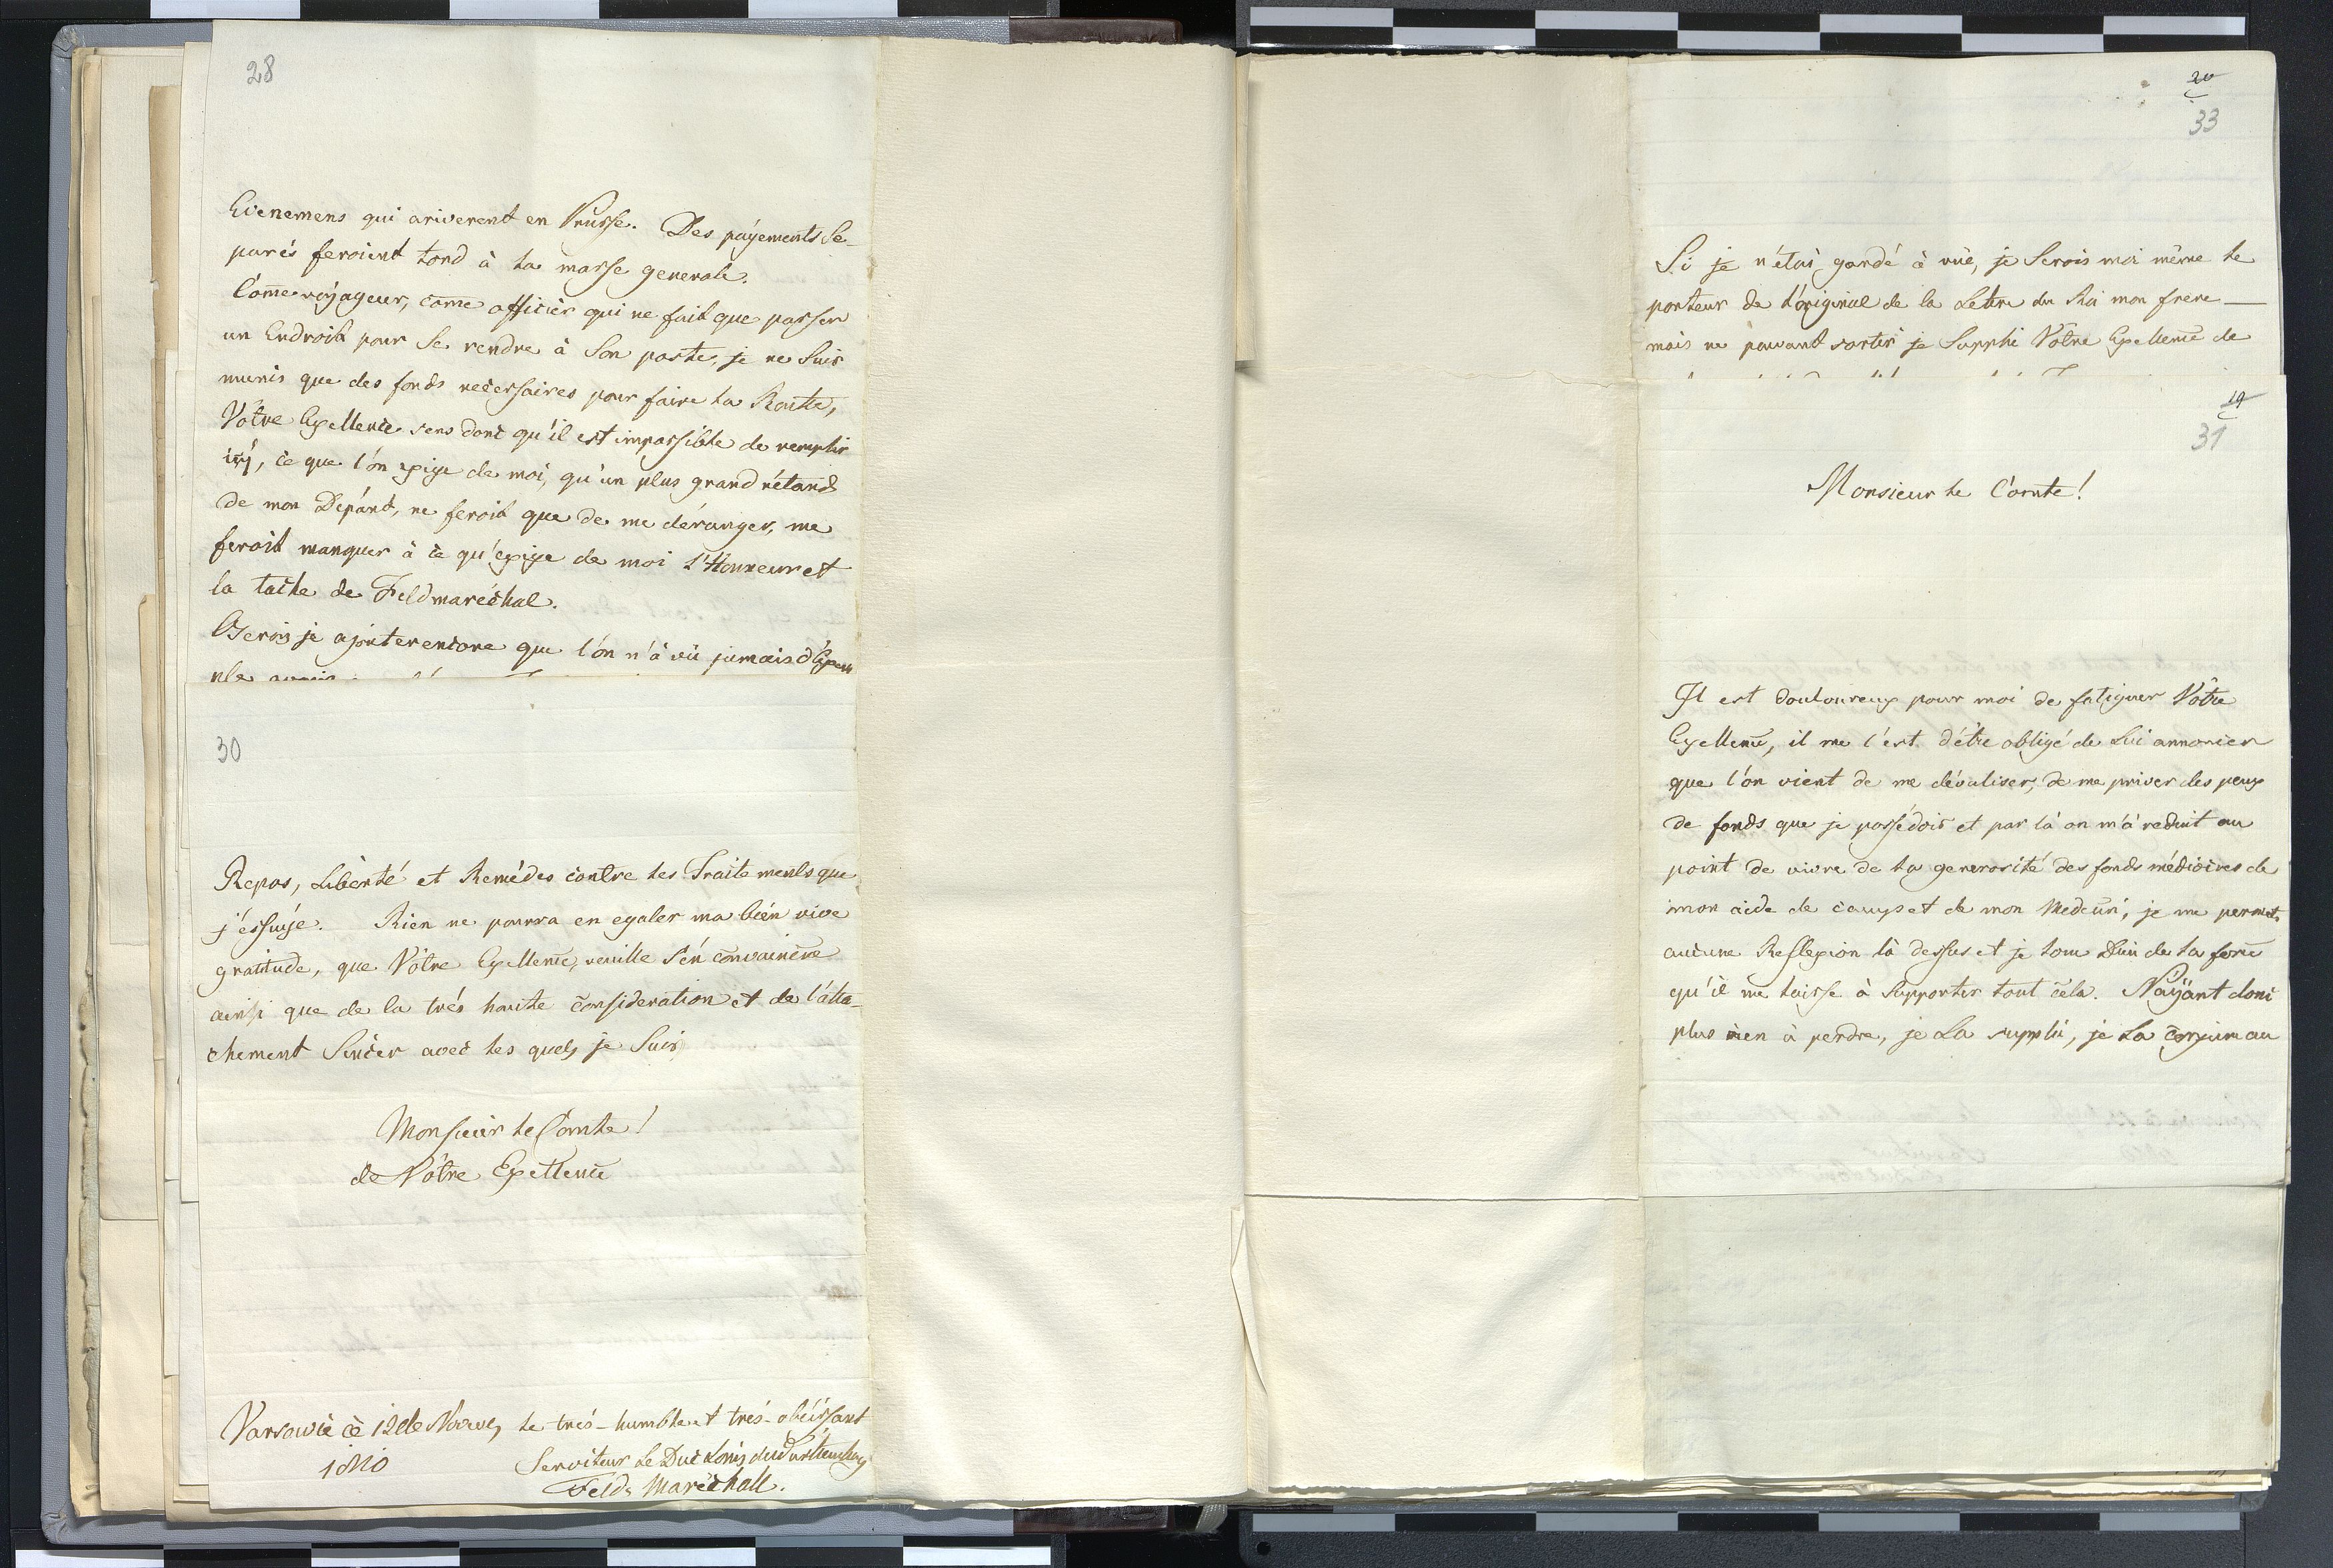 28
Evenemens qui ariverent en Prusse. Des payements Se-
parés feroient tord à la masse generale.
Com̄e voyageur, com̄e officier qui ne fait que passer
un Endroit pour Se rendre à Son poste, je ne Suis
munis que des fonds necessaires pour faire la Route,
Vôtre Exellence sens donc qu'il est impossible de remplir
içi, ce que l'ón exige de moi, qu'un plus grand rétard
de mon Depárt, ne feroit que de me déranger, me
feroit manquer à ce qu'exige de moi l'Honneur et
la tache de Feldmaréchal.
Oserois je ajouter encore que l'ón n'à vû jamais d'Exem
ple
30
Repos, Liberté et Remédes contre les Traitements que
j'éssuye. Rien ne pourra en egaler ma bien vive
gratitude, que Vôtre Exellence, veuille s'én convaincre
ainsi que de la trés haute consideration et de l'átta-
chement Sincer avec les quels je Suis
Monsieur le Comte!
de Vôtre Exellence
Varsovie cè 12 de Novem, le trés-humble et trés-obéissant
1810 Serviteur Le Duc Louis de Wurttemberg
Feld Maréchall.
20
33
Si je n'étois gardé à vüe, je Serois moi même le
porteur de l'óriginal de la Lettre du Roi mon frere—
mais ne pouvant sortir je Supplie Vôtre Exellence de
19
31
Monsieur le Comte!
Il est douloureux pour moi de fatiguer Vôtre
Exellence, il me l'ést d'étre obligé de Lui annoncer
que l'ón vient de me dévaliser, de me priver des peux
de fonds que je possédois et par là on m'à reduit au
point de vivre de la generosité des fonds médiocres de
mon aide de camps et de mon Medecin, je me permets
aucune Reflexion là dessus et je loue Dieu de la force
qu'il me laisse à Supporter tout cela. N'ayant donc
plus rien à perdre, je La supplie, je La conjure au